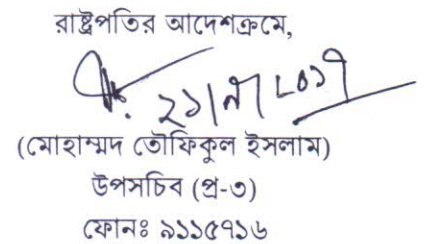 রাষ্ট্রপতির আদেশক্রমে,
(মোহাম্মদ তৌফিকুল ইসলাম)
উপসচিব (প্র-৩)
ফোনঃ ৯১১৫৭১৬